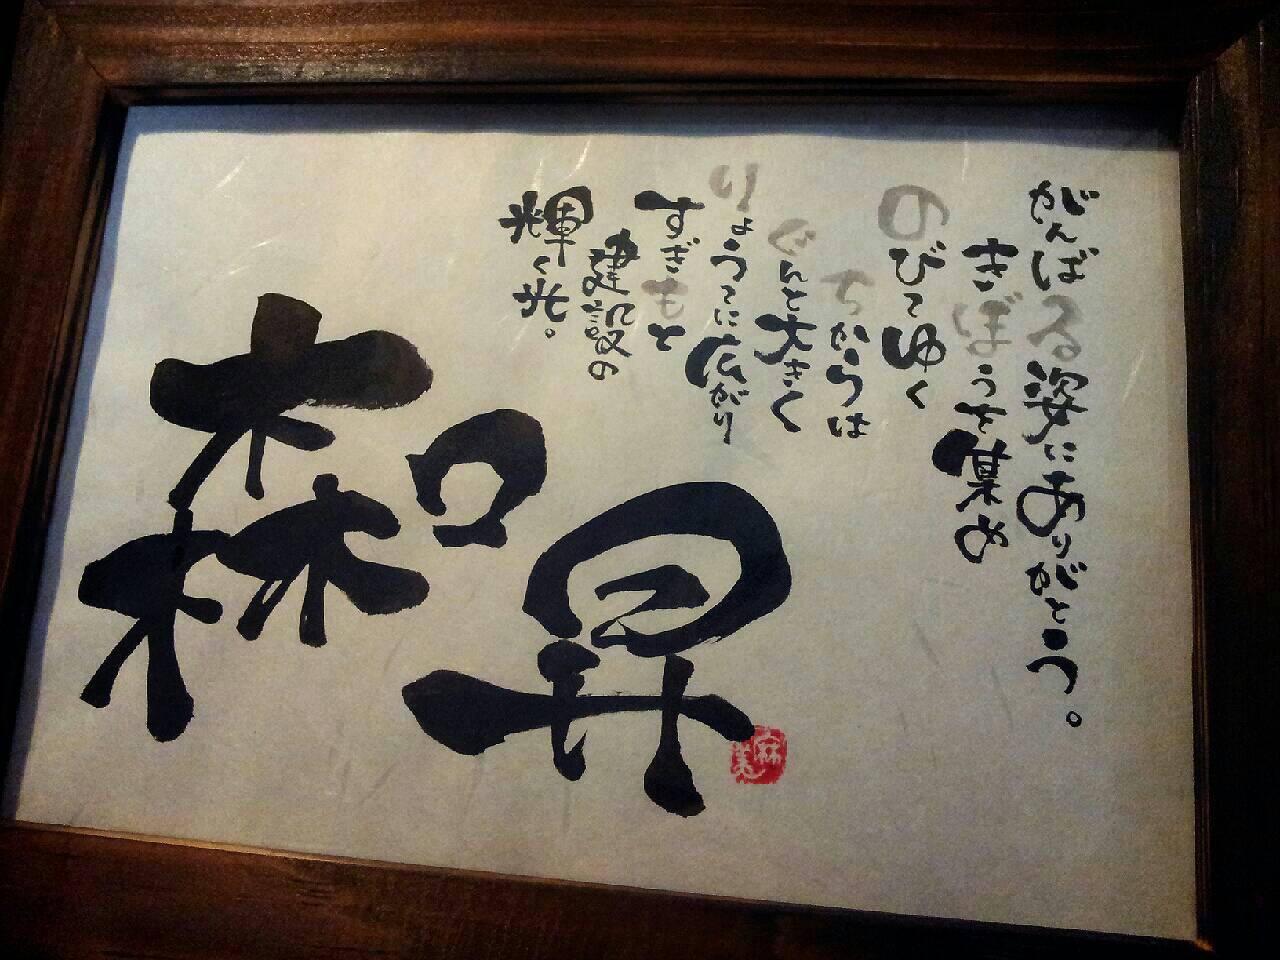 がんばる姿にありがとう。
きぼうを集め
のびてゆく
ちからは
ぐんと大きく
りょうてに広がり
すぎもと
建設の
輝く光。
森口昇
麻美